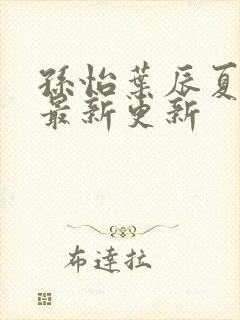 孫怡葉辰夏
最新更新
布達拉